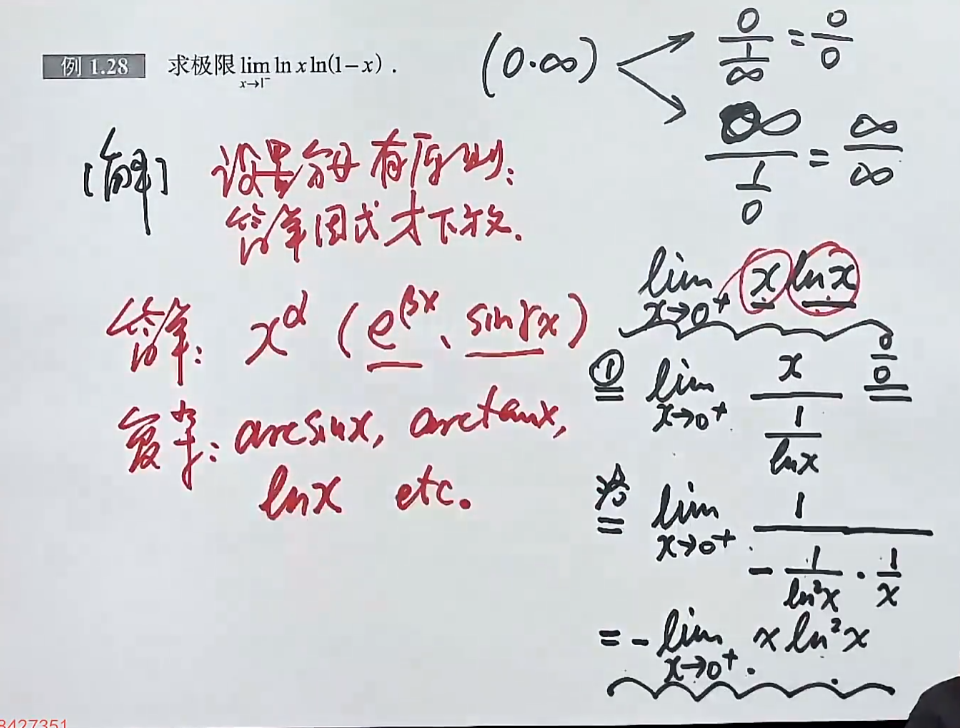 例 1.28 求极限 lim ln x ln(1-x) .
x→1⁻
(0·∞)
0/(1/∞) = 0/0
∞/(1/0) = ∞/∞
[解] 设置分母有原则:
简单因式才下放.
简单: x^α (e^βx、sinγx)
复杂: arcsinx, arctanx,
lnx etc.
lim x→0⁺ x lnx
① = lim x→0⁺ x/(1/lnx) 0/0
洛 = lim x→0⁺ 1/(-1/ln²x · 1/x)
= - lim x→0⁺ x ln²x
8427351